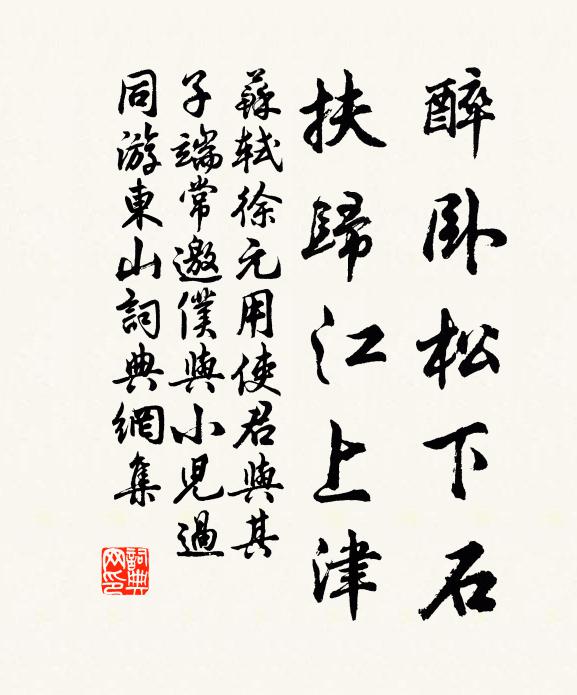 醉臥松下石
扶歸江上津
蘇軾徐元用使君與其
子端常邀僕與小兒過
同游東山詞典網集
詞典
网印